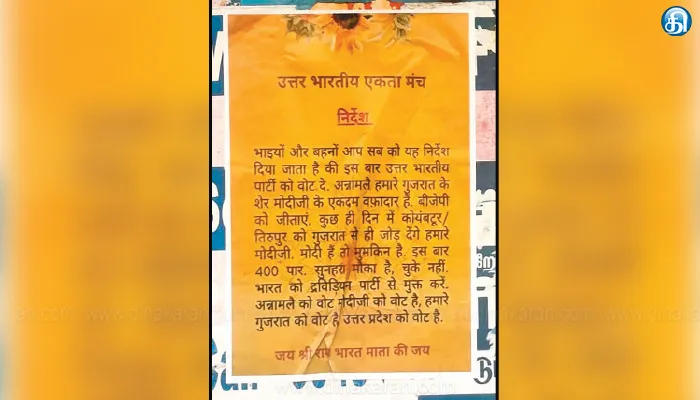 தி
उत्तर भारतीय एकता मंच
निर्देश
भाइयों और बहनों आप सब को यह निर्देश
दिया जाता है की इस बार उत्तर भारतीय
पार्टी को वोट दे. अन्नामलै हमारे गुजरात के
शेर मोदीजी के एकदम वफ़ादार है. बीजेपी
को जीताएं. कुछ ही दिन में कोयंबटूर/
तिरुपुर को गुजरात से ही जोड़ देंगे हमारे
मोदीजी. मोदी हैं तो मुमकिन है. इस बार
400 पार. सुनहरा मौका है, चुके नहीं.
भारत को द्रविड़ियन पार्टी से मुक्त करें.
अन्नामले को वोट मोदीजी को वोट है, हमारे
गुजरात को वोट है उत्तर प्रदेश को वोट है.
जय श्री राम भारत माता की जय
www.dinakaran.com